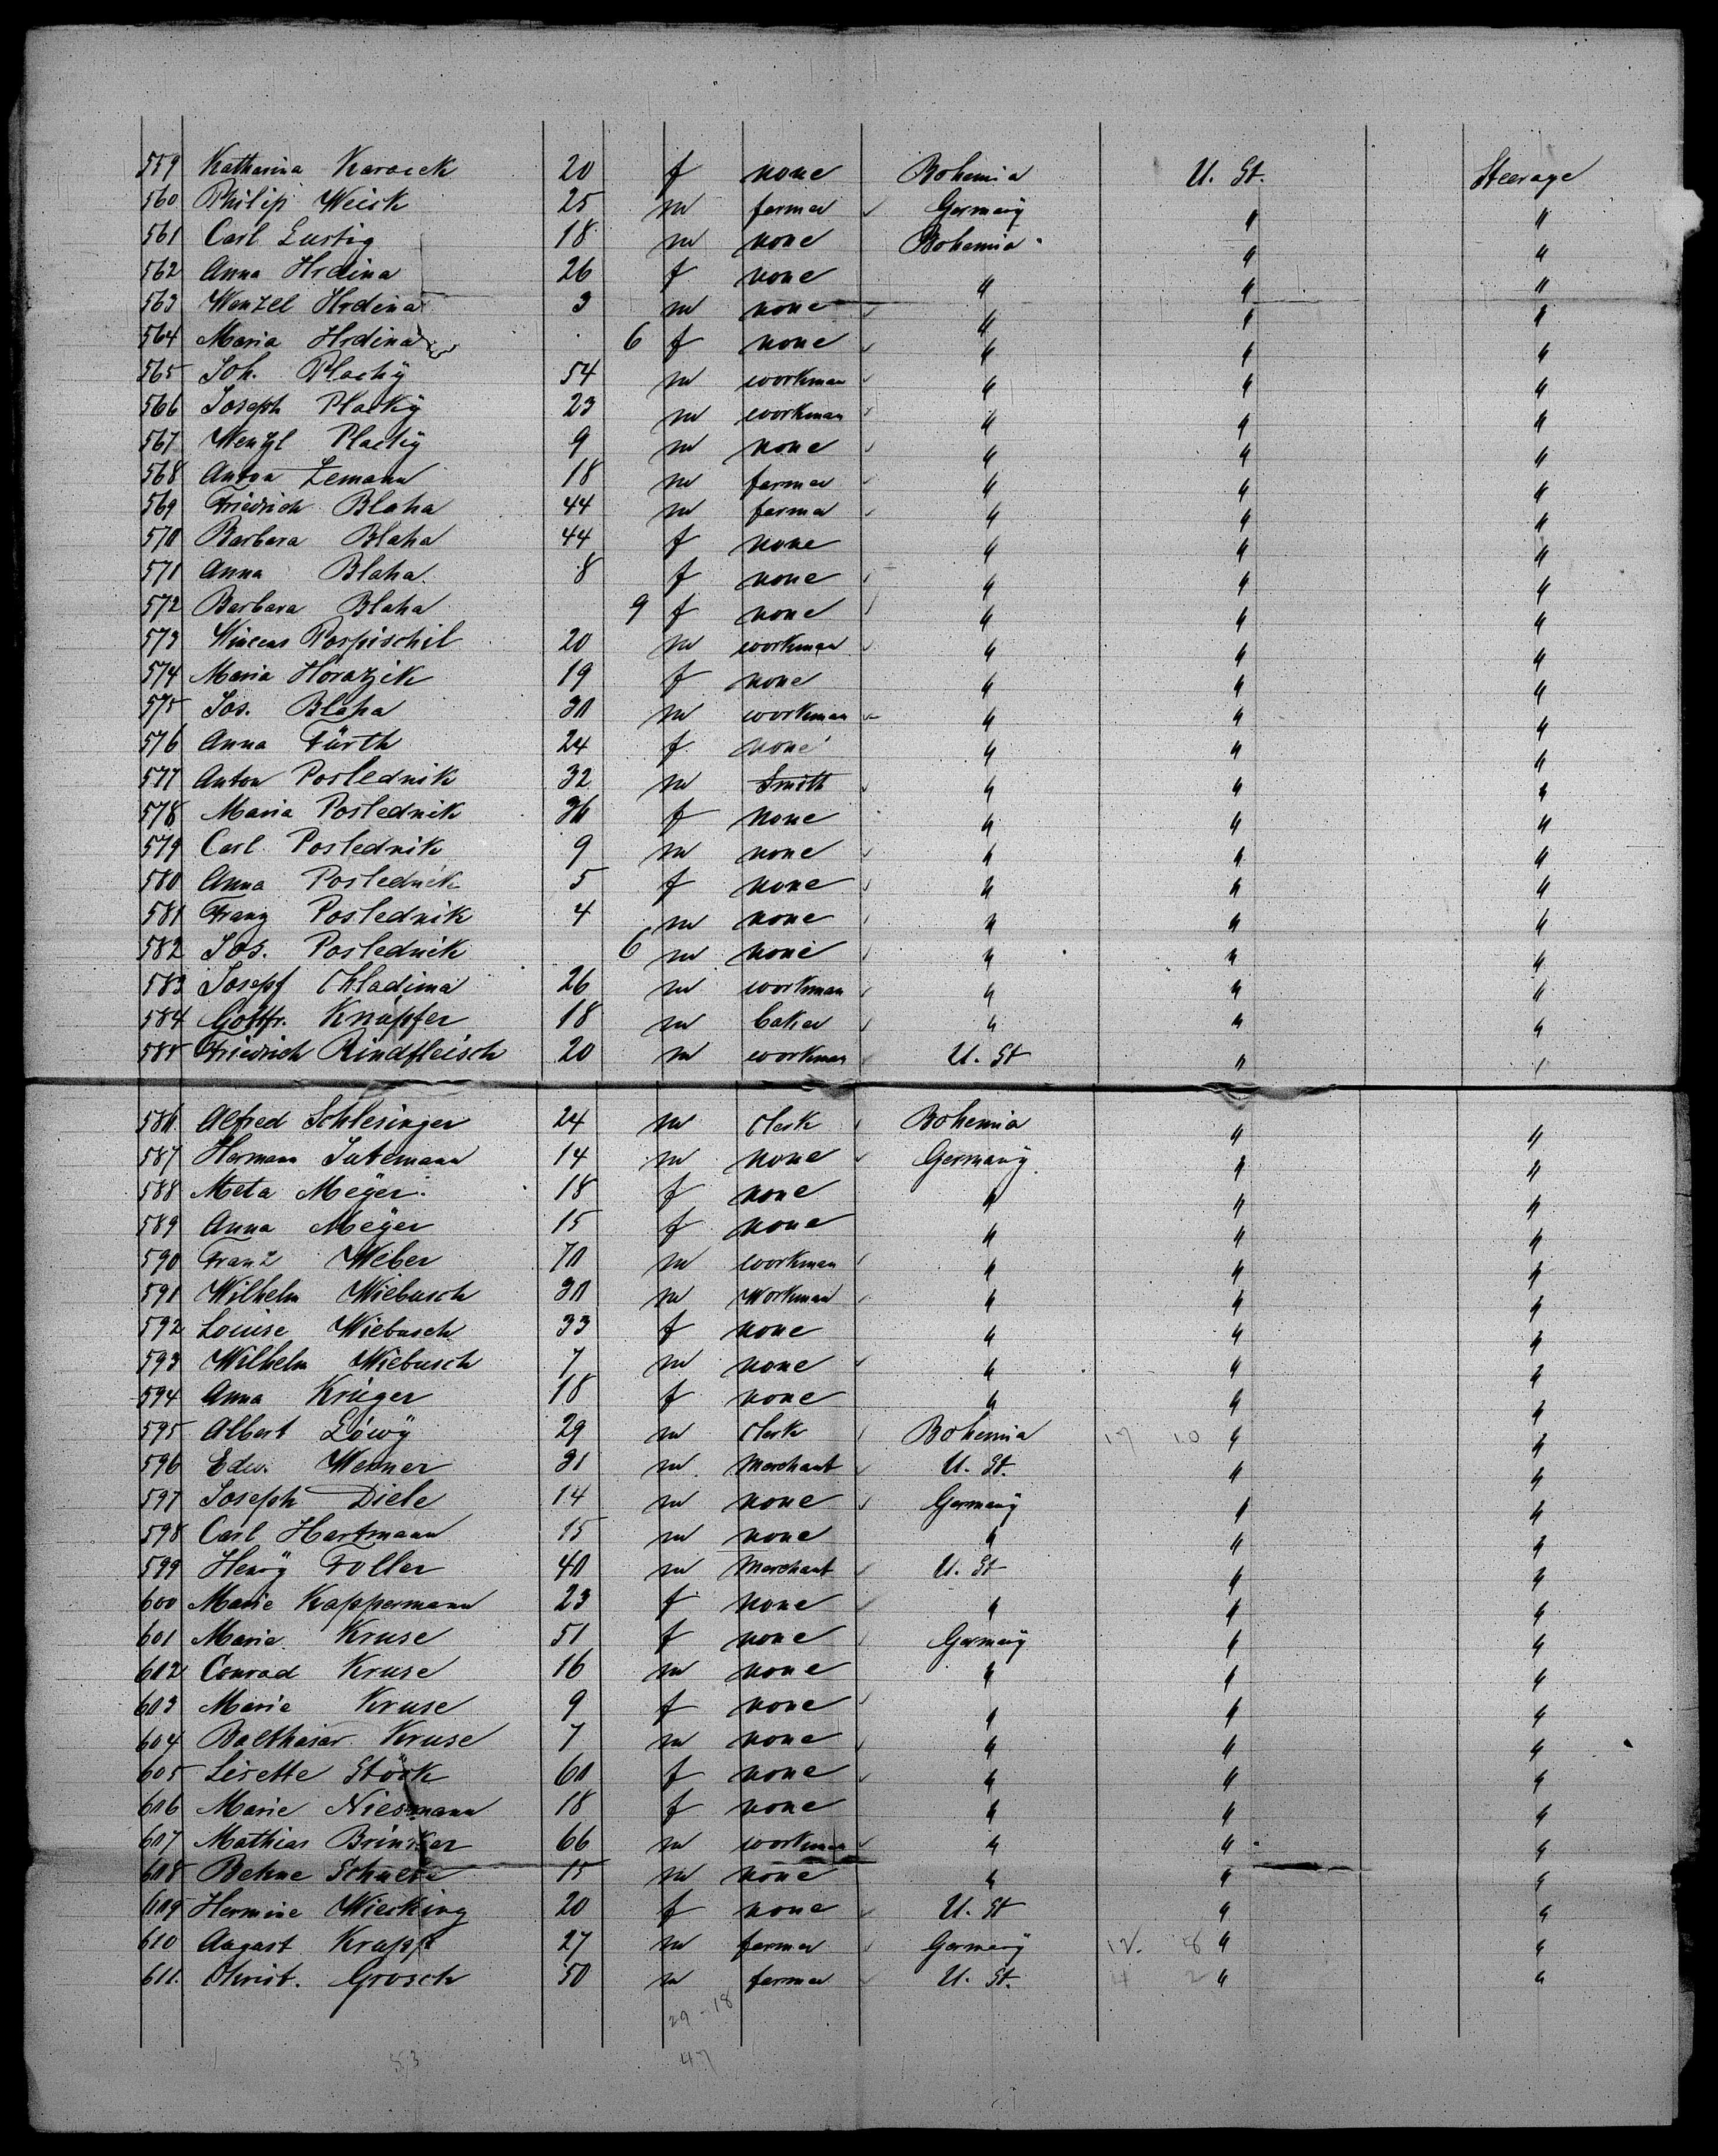 559 Katharina Karorck 20 f none Bohemia U. St. Steerage
560 Philip Weick 25 m farmer Germany " "
561 Carl Lustig 18 m none Bohemia " "
562 Anna Hrdina 26 f none " " "
563 Wenzel Hrdina 3 m none " " "
564 Maria Hrdina 6 f none " " "
565 Joh. Plachÿ 54 m workman " " "
566 Joseph Plachÿ 23 m workman " " "
567 Wenzl Plachÿ 9 m none " " "
568 Anton Zemann 18 m farmer " " "
569 Friedrich Blaha 44 m farmer " " "
570 Barbara Blaha 44 f none " " "
571 Anna Blaha 8 f none " " "
572 Barbara Blaha 9 f none " " "
573 Wincens Pospischil 20 m workman " " "
574 Maria Horatzik 19 f none " " "
575 Jos. Blaha 30 m workman " " "
576 Anna Fürth 24 f none " " "
577 Anton Poslednik 32 m Smith " " "
578 Maria Poslednik 30 f none " " "
579 Carl Poslednik 9 m none " " "
580 Anna Poslednik 5 f none " " "
581 Franz Poslednik 4 m none " " "
582 Jos. Poslednik 6 m none " " "
583 Josepf Chladima 26 m workman " " "
584 Gottfr. Knüpfer 18 m baker " " "
585 Friedrich Rindfleisch 20 m workman U. St " "
586 Alfred Schlesinger 24 m clerk Bohemia " "
587 Hermann Jutemann 14 m none Germanÿ " "
588 Meta Meÿer 18 f none " " "
589 Anna Meÿer 15 f none " " "
590 Franz Weber 70 m workman " " "
591 Wilhelm Wiebusch 30 m Workman " " "
592 Louise Wiebusch 33 f none " " "
593 Wilhelm Wiebusch 7 m none " " "
594 Anna Krüger 18 f none " " "
595 Albert Löwÿ 29 m clerk Bohemia 17 10 " "
596 Edw. Werner 31 m Merchant U. St. " "
597 Joseph Diele 14 m none Germanÿ " "
598 Carl Hartmann 15 m none " " "
599 Henrÿ Foller 40 m Merchant U. St " "
600 Marie Kappermann 23 f none " " "
601 Marie Kruse 51 f none Germanÿ " "
602 Conrad Kruse 16 m none " " "
603 Marie Kruse 9 f none " " "
604 Balthasar Kruse 7 m none " " "
605 Lisette Störk 60 f none " " "
606 Marie Niesmann 18 f none " " "
607 Mathias Brinker 66 m workman " " "
608 Behne 15 m none " " "
609 Hermine Wierking 20 f none U. St " "
610 August Krapf 27 m farmer Germanÿ 12. 8 " "
611. Christ. Grosch 50 m farmer U. St. 4 2 " "
29-18
53 47